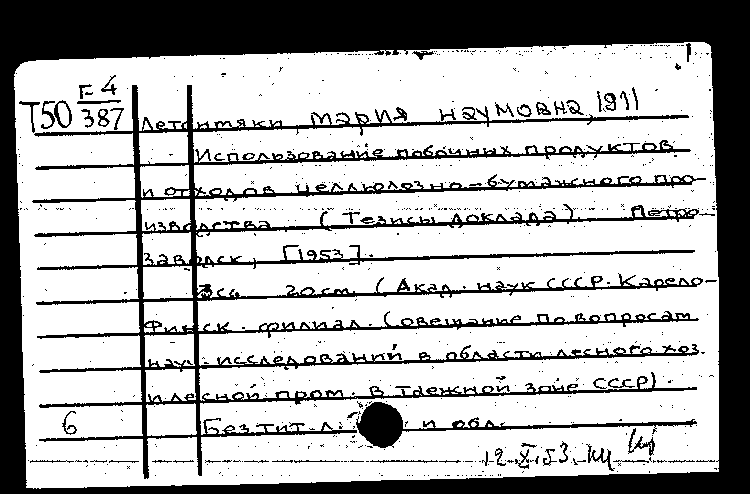 F 4
T50 387
Летонмяки, Мария Наумовна, 1911
Использование побочных продуктов
и отходов целлюлозно-бумажного про-
изводства. (Тезисы доклада). Петро-
заводск, [1953].
3с. 20 см. (Акад. наук СССР. Карело-
Финск. филиал. Совещание по вопросам
науч. исследований в области лесного хоз.
и лесной пром. в таежной зоне СССР).
6 Без тит. л. и обл.
12.X.53.